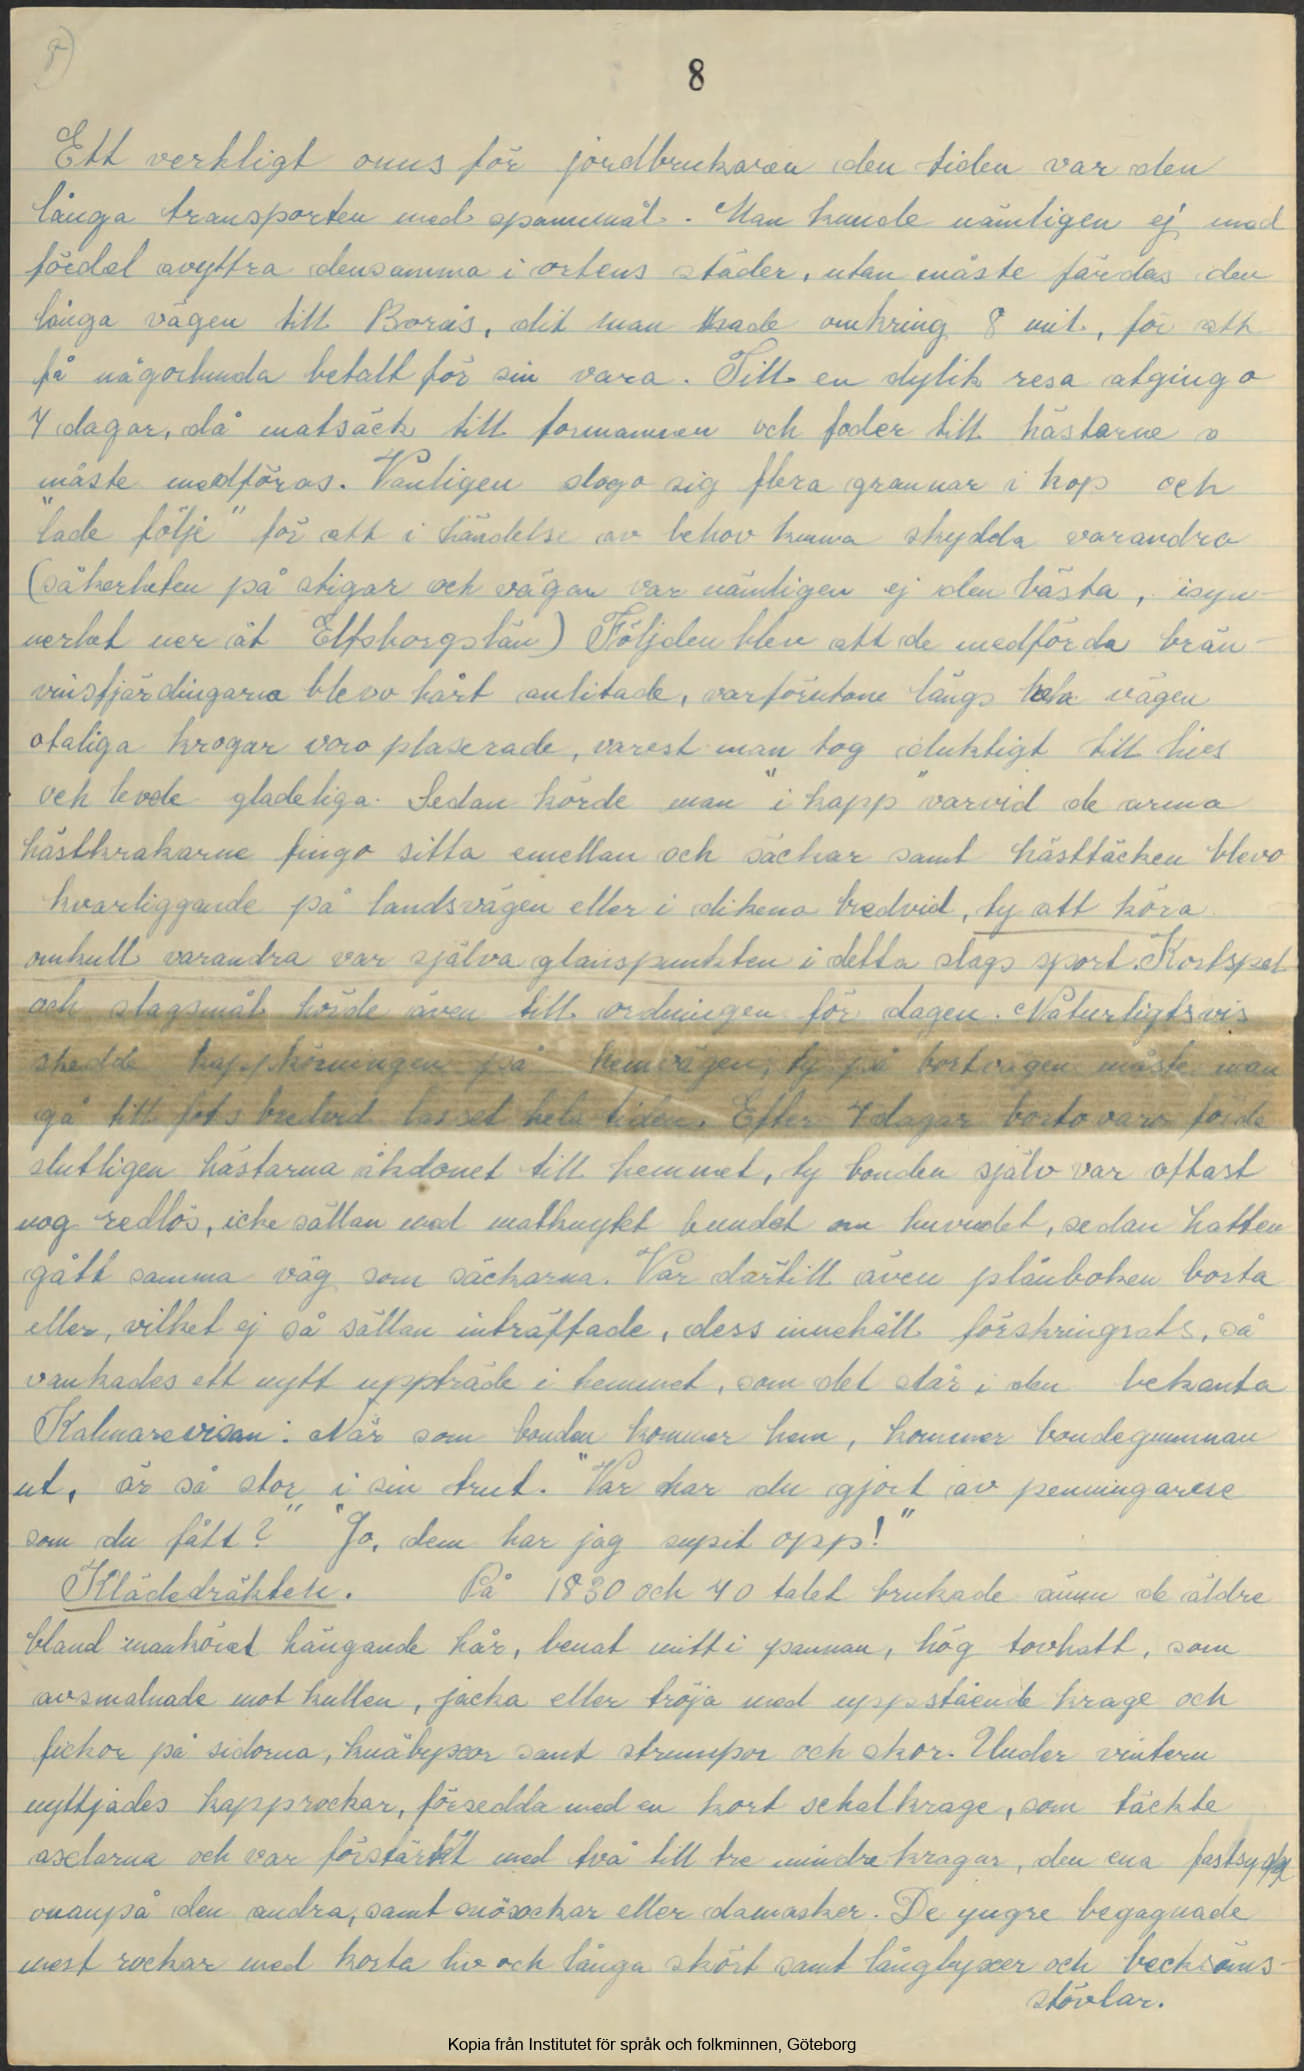 8)
8
Ett verkligt onus för jordbrukaren den tiden var den
långa transporten med spannmål. Man kunde nämligen ej med
fördel avyttra densamma i ortens städer, utan måste färdas den
långa vägen till Borås, dit man hade omkring 8 mil, för att
få någorlunda betalt för sin vara. Till en dylik resa åtgingo
4 dagar, då matsäck till formannen och foder till hästarne
måste medföras. Vanligen slogo sig flera grannar i hop och
"lade följe" för att i händelse av behov kunna skydda varandra
(säkerheten på stigar och vägar var nämligen ej den bästa, isyn-
nerhet ner åt Elfsborgslän) Följden blev att de medförda brän-
vinsfjärdingarna blevo hårt anlitade, varförutom längs hela vägen
otaliga krogar voro placerade, varest man tog duktigt till livs
och levde gladeliga. Sedan körde man "i kapp" varvid de arma
hästkrakarne fingo sitta emellan och säckar samt hästtäcken blevo
kvarliggande på landsvägen eller i dikena bredvid, ty att köra
omkull varandra var själva glanspunkten i detta slags sport. Kortspel
och slagsmål hörde även till ordningen för dagen. Naturligtsvis
skedde kappkörningen på hemvägen, ty på bortvägen måste man
gå till fots bredvid lasset hela tiden. Efter 4 dagar borto varo förde
slutligen hästarna åkdonet till hemmet, ty bonden själv var oftast
nog redlös, icke sällan med matknytet bundet om huvudet, sedan hatten
gått samma väg som säckarna. Var därtill även plånboken borta
eller, vilket ej så sällan inträffade, dess innehåll förskringrats, så
vankades ett nytt uppträde i hemmet, som det står i den bekanta
Kalmarevisan: När som bonden kommer hem, kommer bondegumman
ut, är så stor i sin trut. "Var har du gjort av penningarne
som du fått?" "Jo, dem har jag supit opp!"
Klädedräkten. På 1830 och 40 talet brukade ännu de äldre
bland mankönet hängande hår, benat mitt i pannan, hög tovhatt, som
avsmalnade mot kullen, jacka eller tröja med uppstående krage och
fickor på sidorna, knäbyxor samt strumpor och skor. Under vintern
nyttjades kapprockar, försedda med en kort schalkrage, som täckte
axlarna och var förstärkt med två till tre mindre kragar, den ena fastsydd
ovanpå den andra, samt snösockar eller damasker. De yngre begagnade
mest rockar med korta liv och långa skört samt långbyxer och becksöms-
stövlar.
Kopia från Institutet för språk och folkminnen, Göteborg